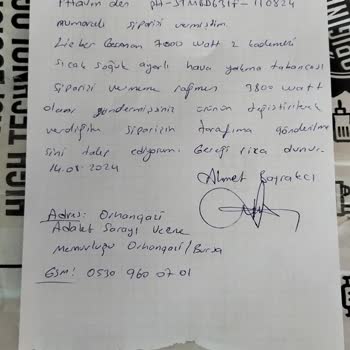 PTTavm den PH-STM6D631F-110824
numaralı siparişi vermiştim.
Lieber German 7000 watt 2 kademeli
sıcak soğuk ayarlı hava yakma tabancası
siparişi vermeme rağmen 3800 watt
olanı göndermişsiniz ürünün değiştirilerek
verdiğim siparişin tarafıma gönderilme
sini talep ediyorum. Gereği rica olunur.
14.08.2024
Ahmet Bayrakcı
Adres: Orhangazi
Adalet Sarayı Vezne
Memurluğu Orhangazi/Bursa
GSM: 0530 960 07 01
HIGH TECHNOLOGY